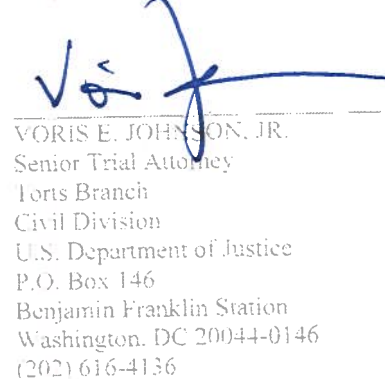 VORIS E. JOHNSON, JR.
Senior Trial Attorney
Torts Branch
Civil Division
U.S. Department of Justice
P.O. Box 146
Benjamin Franklin Station
Washington, DC 20044-0146
(202) 616-4136